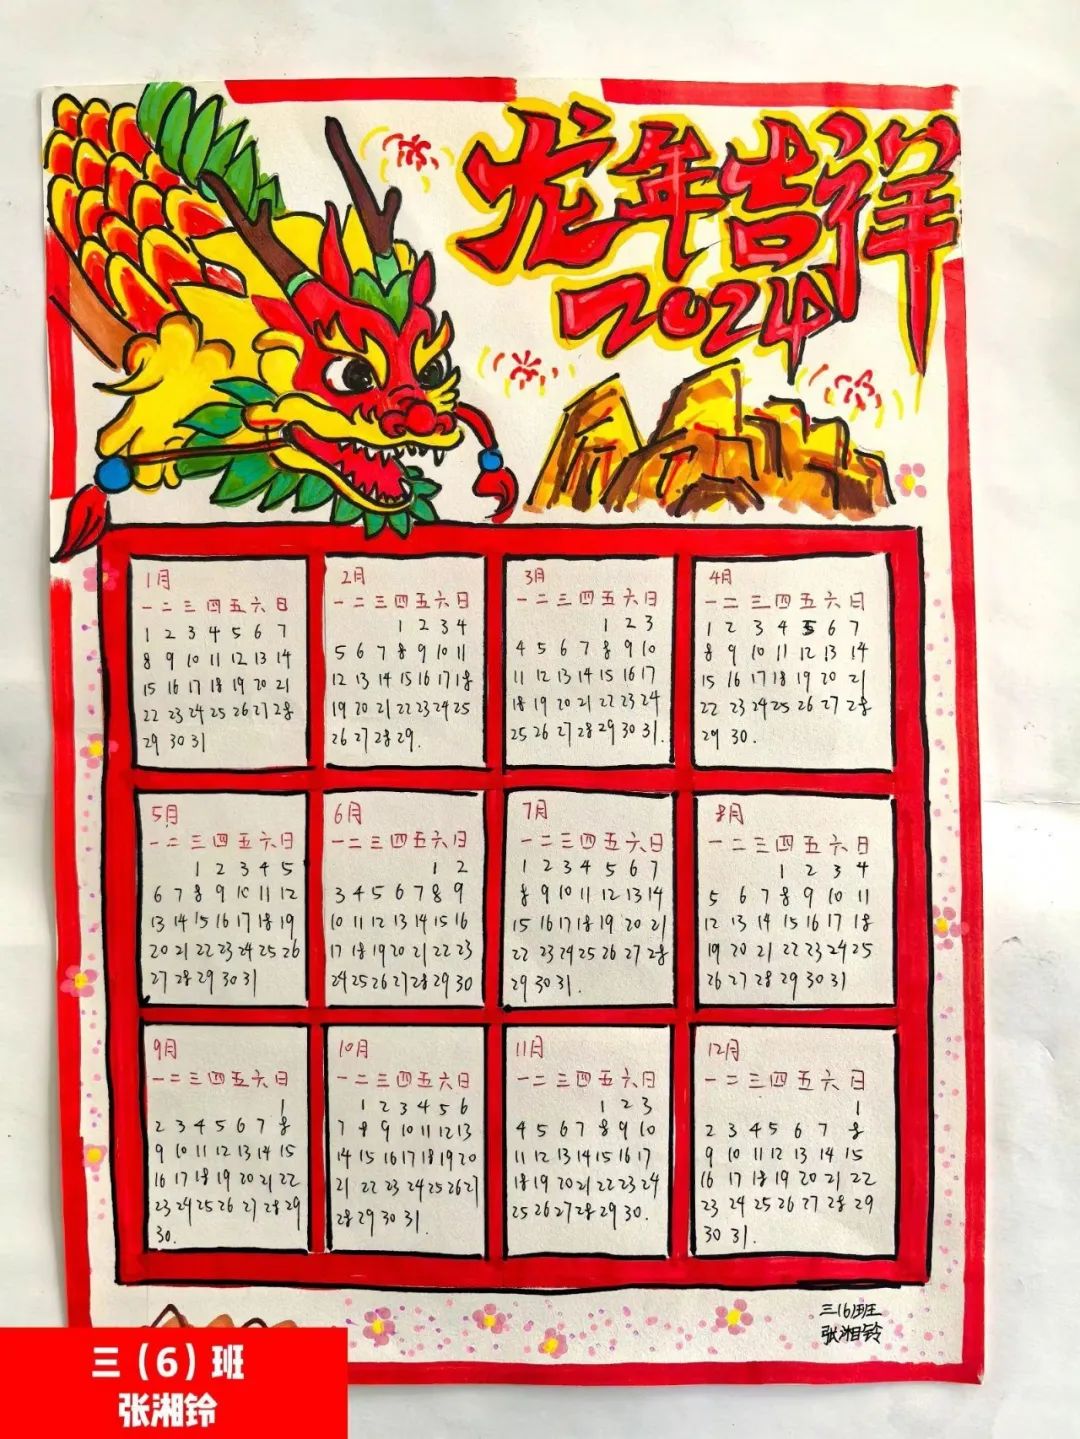 龙年吉祥
2024
1月
一 二 三 四 五 六 日
1 2 3 4 5 6 7
8 9 10 11 12 13 14
15 16 17 18 19 20 21
22 23 24 25 26 27 28
29 30 31
2月
一 二 三 四 五 六 日
1 2 3 4
5 6 7 8 9 10 11
12 13 14 15 16 17 18
19 20 21 22 23 24 25
26 27 28 29.
3月
一 二 三 四 五 六 日
1 2 3
4 5 6 7 8 9 10
11 12 13 14 15 16 17
18 19 20 21 22 23 24
25 26 27 28 29 30 31.
4月
一 二 三 四 五 六 日
1 2 3 4 5 6 7
8 9 10 11 12 13 14
15 16 17 18 19 20 21
22 23 24 25 26 27 28
29 30.
5月
一 二 三 四 五 六 日
1 2 3 4 5
6 7 8 9 10 11 12
13 14 15 16 17 18 19
20 21 22 23 24 25 26
27 28 29 30 31
6月
一 二 三 四 五 六 日
1 2
3 4 5 6 7 8 9
10 11 12 13 14 15 16
17 18 19 20 21 22 23
24 25 26 27 28 29 30
7月
一 二 三 四 五 六 日
1 2 3 4 5 6 7
8 9 10 11 12 13 14
15 16 17 18 19 20 21
22 23 24 25 26 27 28
29 30 31.
8月
一 二 三 四 五 六 日
1 2 3 4
5 6 7 8 9 10 11
12 13 14 15 16 17 18
19 20 21 22 23 24 25
26 27 28 29 30 31
9月
一 二 三 四 五 六 日
1
2 3 4 5 6 7 8
9 10 11 12 13 14 15
16 17 18 19 20 21 22
23 24 25 26 27 28 29
30.
10月
一 二 三 四 五 六 日
1 2 3 4 5 6
7 8 9 10 11 12 13
14 15 16 17 18 19 20
21 22 23 24 25 26 27
28 29 30 31.
11月
一 二 三 四 五 六 日
1 2 3
4 5 6 7 8 9 10
11 12 13 14 15 16 17
18 19 20 21 22 23 24
25 26 27 28 29 30.
12月
一 二 三 四 五 六 日
1
2 3 4 5 6 7 8
9 10 11 12 13 14 15
16 17 18 19 20 21 22
23 24 25 26 27 28 29
30 31.
三(6)班
张湘铃
三（6）班
张湘铃